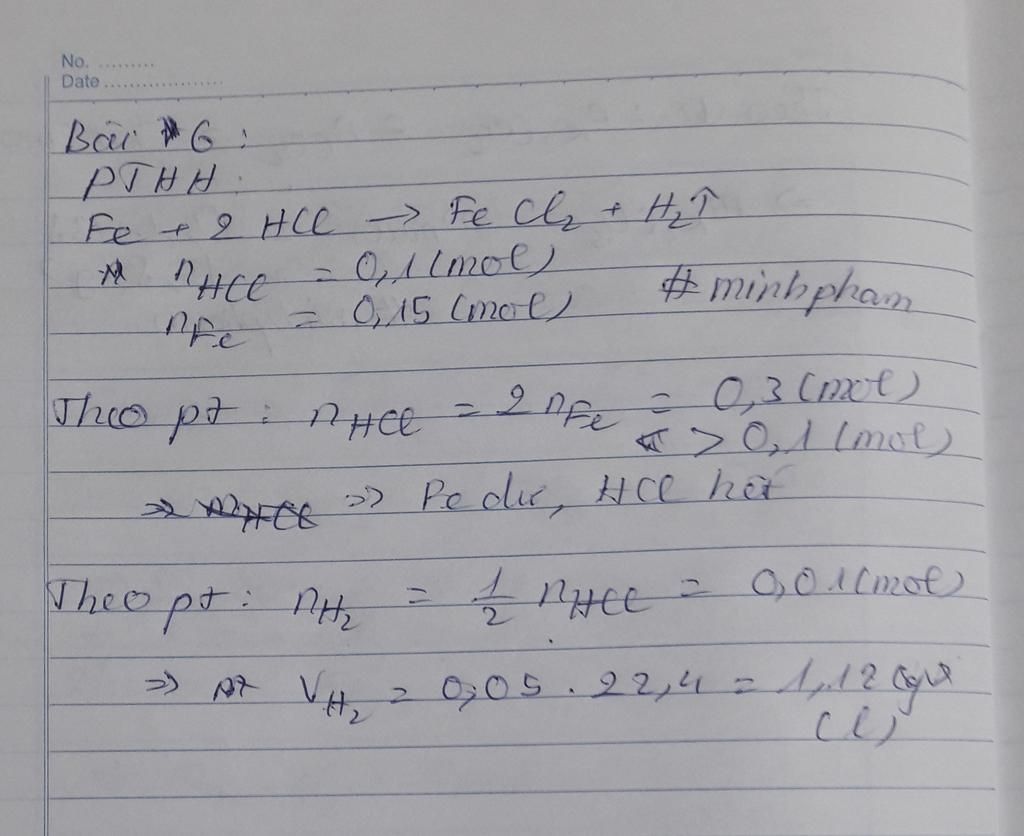 No. .........
Date ...................
Bài 6 :
PTHH :
Fe + 2 HCl → FeCl₂ + H₂↑
nHCl = 0,1 (mol)
nFe = 0,15 (mol) # minhpham
Theo pt : nHCl = 2 nFe = 0,3 (mol)
> 0,1 (mol)
=> => Fe dư, HCl hết
Theo pt : nH₂ = 1/2 nHCl = 0,01 (mol)
=> VH₂ = 0,05 . 22,4 = 1,12
(l)